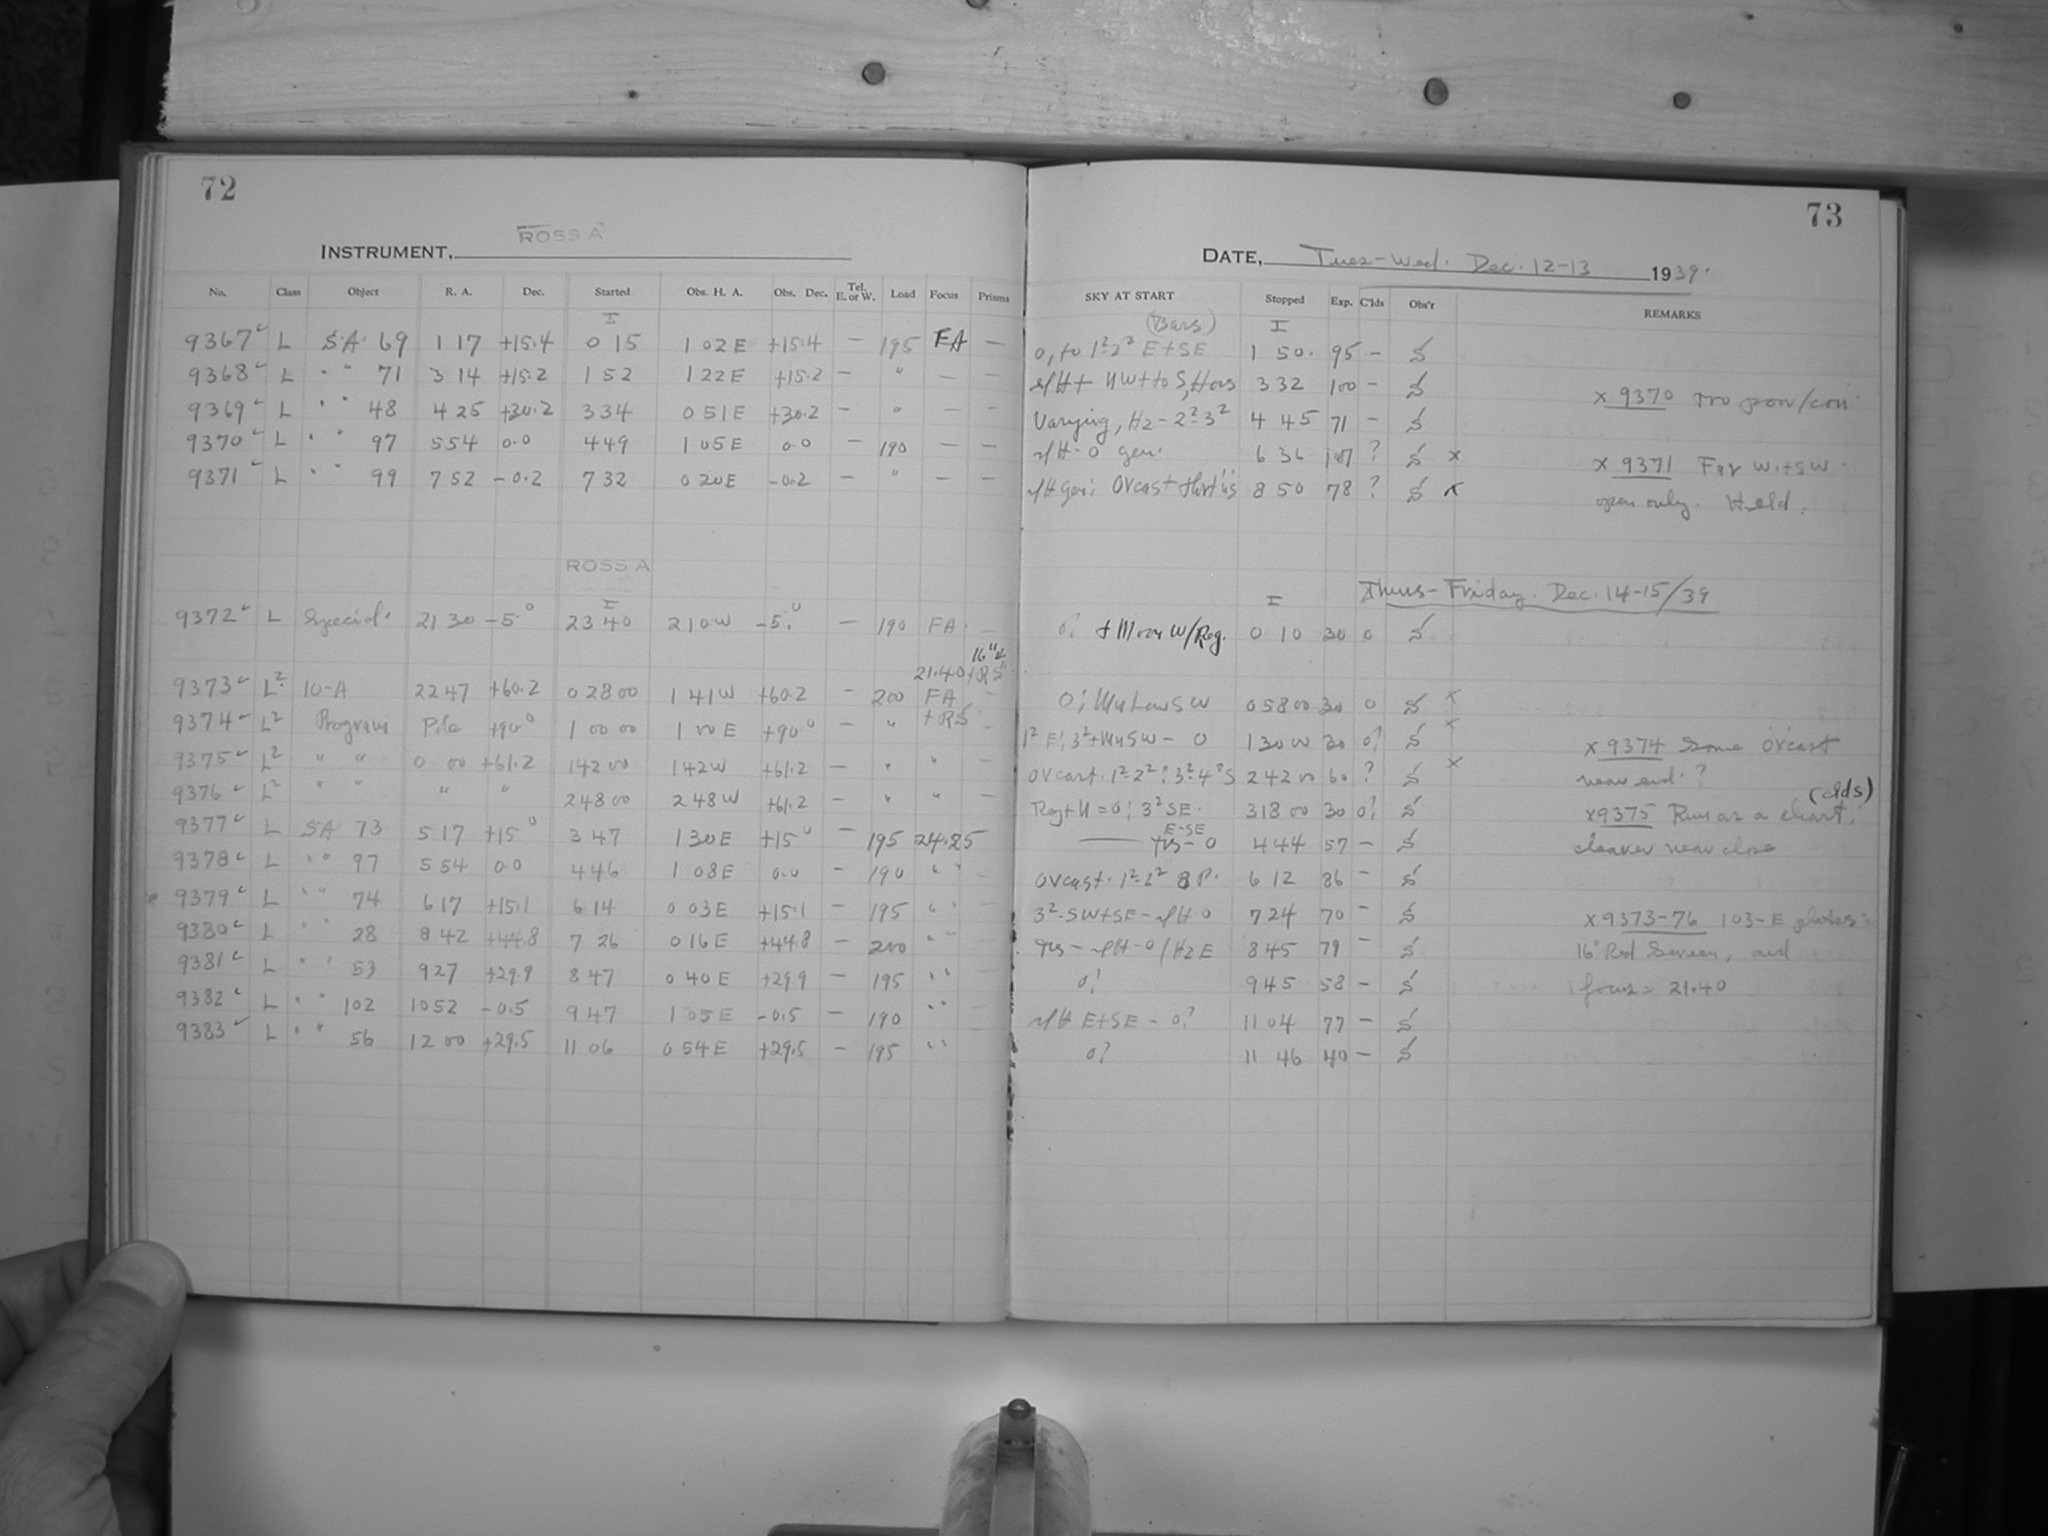 72
ROSS A
INSTRUMENT,
No. Class Object R. A. Dec. Started Obs. H. A. Obs. Dec. Tel. E. or W. Load Focus Prisms
I
9367 L S.A. 69 1 17 +15.4 0 15 1 02 E +15.4 — 195 FA —
9368 L " " 71 3 14 +15.2 1 52 1 22 E +15.2 — " — —
9369 L " " 48 4 25 +30.2 3 34 0 51 E +30.2 — " — —
9370 L " " 97 5 54 0.0 4 49 1 05 E 0.0 — 190 — —
9371 L " " 99 7 52 -0.2 7 32 0 20 E -0.2 — " — —
ROSS A
I
9372 L Special. 21 30 -5° 23 40 2 10 W -5° — 190 FA —
16"
21.40+RS
9373 L² 10-A 22 47 +60.2 0 28 00 1 41 W +60.2 — 200 FA —
9374 L² Program Pole +90° 1 00 00 1 00 E +90° — " +RS —
9375 L² " " 0 00 +61.2 1 42 00 1 42 W +61.2 — " " —
9376 L² " " " " 2 48 00 2 48 W +61.2 — " " —
9377 L SA 73 5 17 +15° 3 47 1 30 E +15° — 195 24.25
9378 L " " 97 5 54 0.0 4 46 1 08 E 0.0 — 190 " " —
9379 L " " 74 6 17 +15.1 6 14 0 03 E +15.1 — 195 " " —
9380 L " " 28 8 42 +44.8 7 26 0 16 E +44.8 — 200 " " —
9381 L " " 53 9 27 +29.9 8 47 0 40 E +29.9 — 195 " " —
9382 L " " 102 10 52 -0.5 9 47 1 05 E -0.5 — 190 " " —
9383 L " " 56 12 00 +29.5 11 06 0 54 E +29.5 — 195 " "
73
DATE, Tues-Wed. Dec. 12-13 1939.
SKY AT START Stopped Exp. C'lds Obs'r REMARKS
(Bars) I
0, to 1²-2² E+SE 1 50. 95 — S
NW+to S, 3 32 100 — S
x 9370 too poor/con.
Varying, H2-2²-3² 4 45 71 — S
0 gen. 6 36 107 ? S x
x 9371 Far W.+SW.
gen; Ovcast 8 50 78 ? S x
open only. Held.
Thurs-Friday. Dec. 14-15/39
I
0? + Moon W/Reg. 0 10 30 0 S
0; Low SW 0 58 00 30 0 S x
1² E; 3²+ SW-0 1 30 00 30 0? S x
x 9374 Some ovcast
Ovcast. 1²-2²; 3²-4² S 2 42 00 60 ? S x
near end.?
Reg+N=0; 3² SE. 3 18 00 30 0? S
x 9375 Run as a chart; (clds)
E-SE
—0 4 44 57 — S
clearer near close
Ovcast. 1²-2² 6 12 86 — S
3²-SW+SE- 0 7 24 70 — S
x 9373-76 103-E plates.
0/H2 E 8 45 79 — S
16" Red Screen, and
0? 9 45 58 — S
focus = 21.40
E+SE-0? 11 04 77 — S
0? 11 46 40 — S